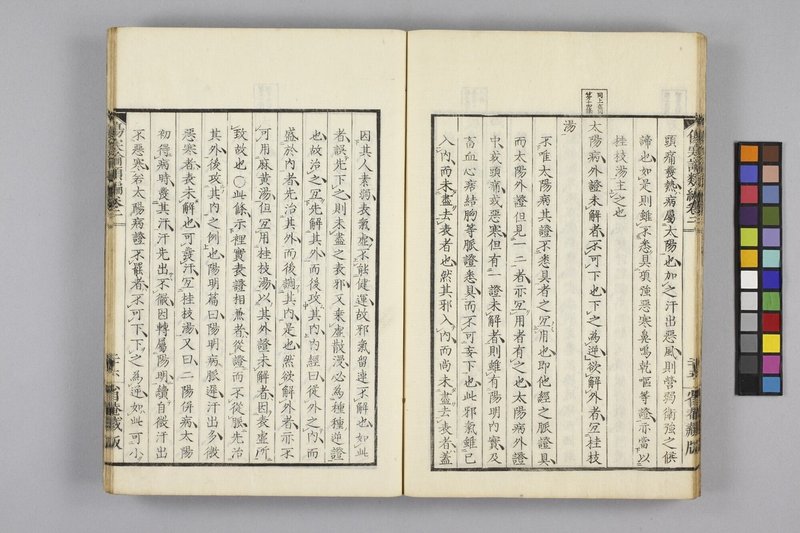 頭痛發熱病屬太陽也加之汗出惡風則營弱衛強之候
諦也如是則雖不悉具項強惡寒鼻鳴乾嘔等證亦當以
桂枝湯主之也
太陽病外證未解者不可下也下之為逆欲解外者宜桂枝
湯
不唯太陽病其證不悉具者之宜用也即他經之脈證具
而太陽外證但見一二者亦宜用者有之也太陽病外證
中或頭痛或惡寒但有一證未解者則雖有陽明內實及
畜血心病結胸等脈證悉具而不可妄下也此邪氣雖已
入內而未盡去表者也然其邪入內而尚未盡去表者蓋
因其人素弱表氣虛不能健運故邪氣留連不解也如此
者誤先下之則未盡之表邪又乘虛散漫必為種種逆證
也故治之宜先解其外而後攻其內內經曰從外之內而
盛於內者先治其外而後調其內是也然欲解外者亦不
可用麻黃湯但宜用桂枝湯以其外證未解者因表虛所
致故也○此條示裡實表證相兼者從證而不從脈先治
其外後攻其內之例也陽明篇曰陽明病脈遲汗出多微
惡寒者表未解也可發汗宜桂枝湯又曰二陽併病太陽
初得病時發其汗汗先出不徹因轉屬陽明續自微汗出
不惡寒若太陽病證不罷者不可下下之為逆如此可小